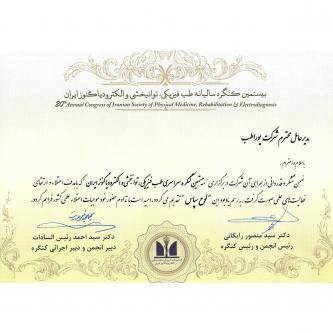 بیستمین کنگره سالیانه طب فیزیکی، توانبخشی و الکترودیاگنوز ایران
20th Annual Congress of Iranian Society of Physical Medicine, Rehabilitation & Electrodiagnosis
مدیرعامل محترم شرکت پورا طب
با سلام و احترام،
ضمن تشکر و قدردانی از همراهی آن شرکت در برگزاری "بیستمین کنگره سراسری طب فیزیکی، توانبخشی و الکترودیاگنوز ایران" که با هدف اعتلاء و ارتقای
فعالیت‌های علمی صورت گرفت، به رسم یادبود این "لوح سپاس" تقدیم می گردد. امید است با تداوم حضور خود موجبات اعتلاء علمی کشور فراهم گردد.
دکتر سید منصور رایگانی
رئیس انجمن و رئیس کنگره
دکتر سید احمد رئیس السادات
دبیر انجمن و دبیر اجرائی کنگره